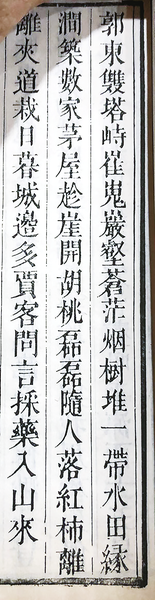 郭東雙塔峙崔嵬巖壑蒼茫烟樹堆一帶水田緣
澗築數家茅屋趁崖開胡桃磊磊隨人落紅柿離
離夾道栽日暮城邊多賈客問言採藥入山來